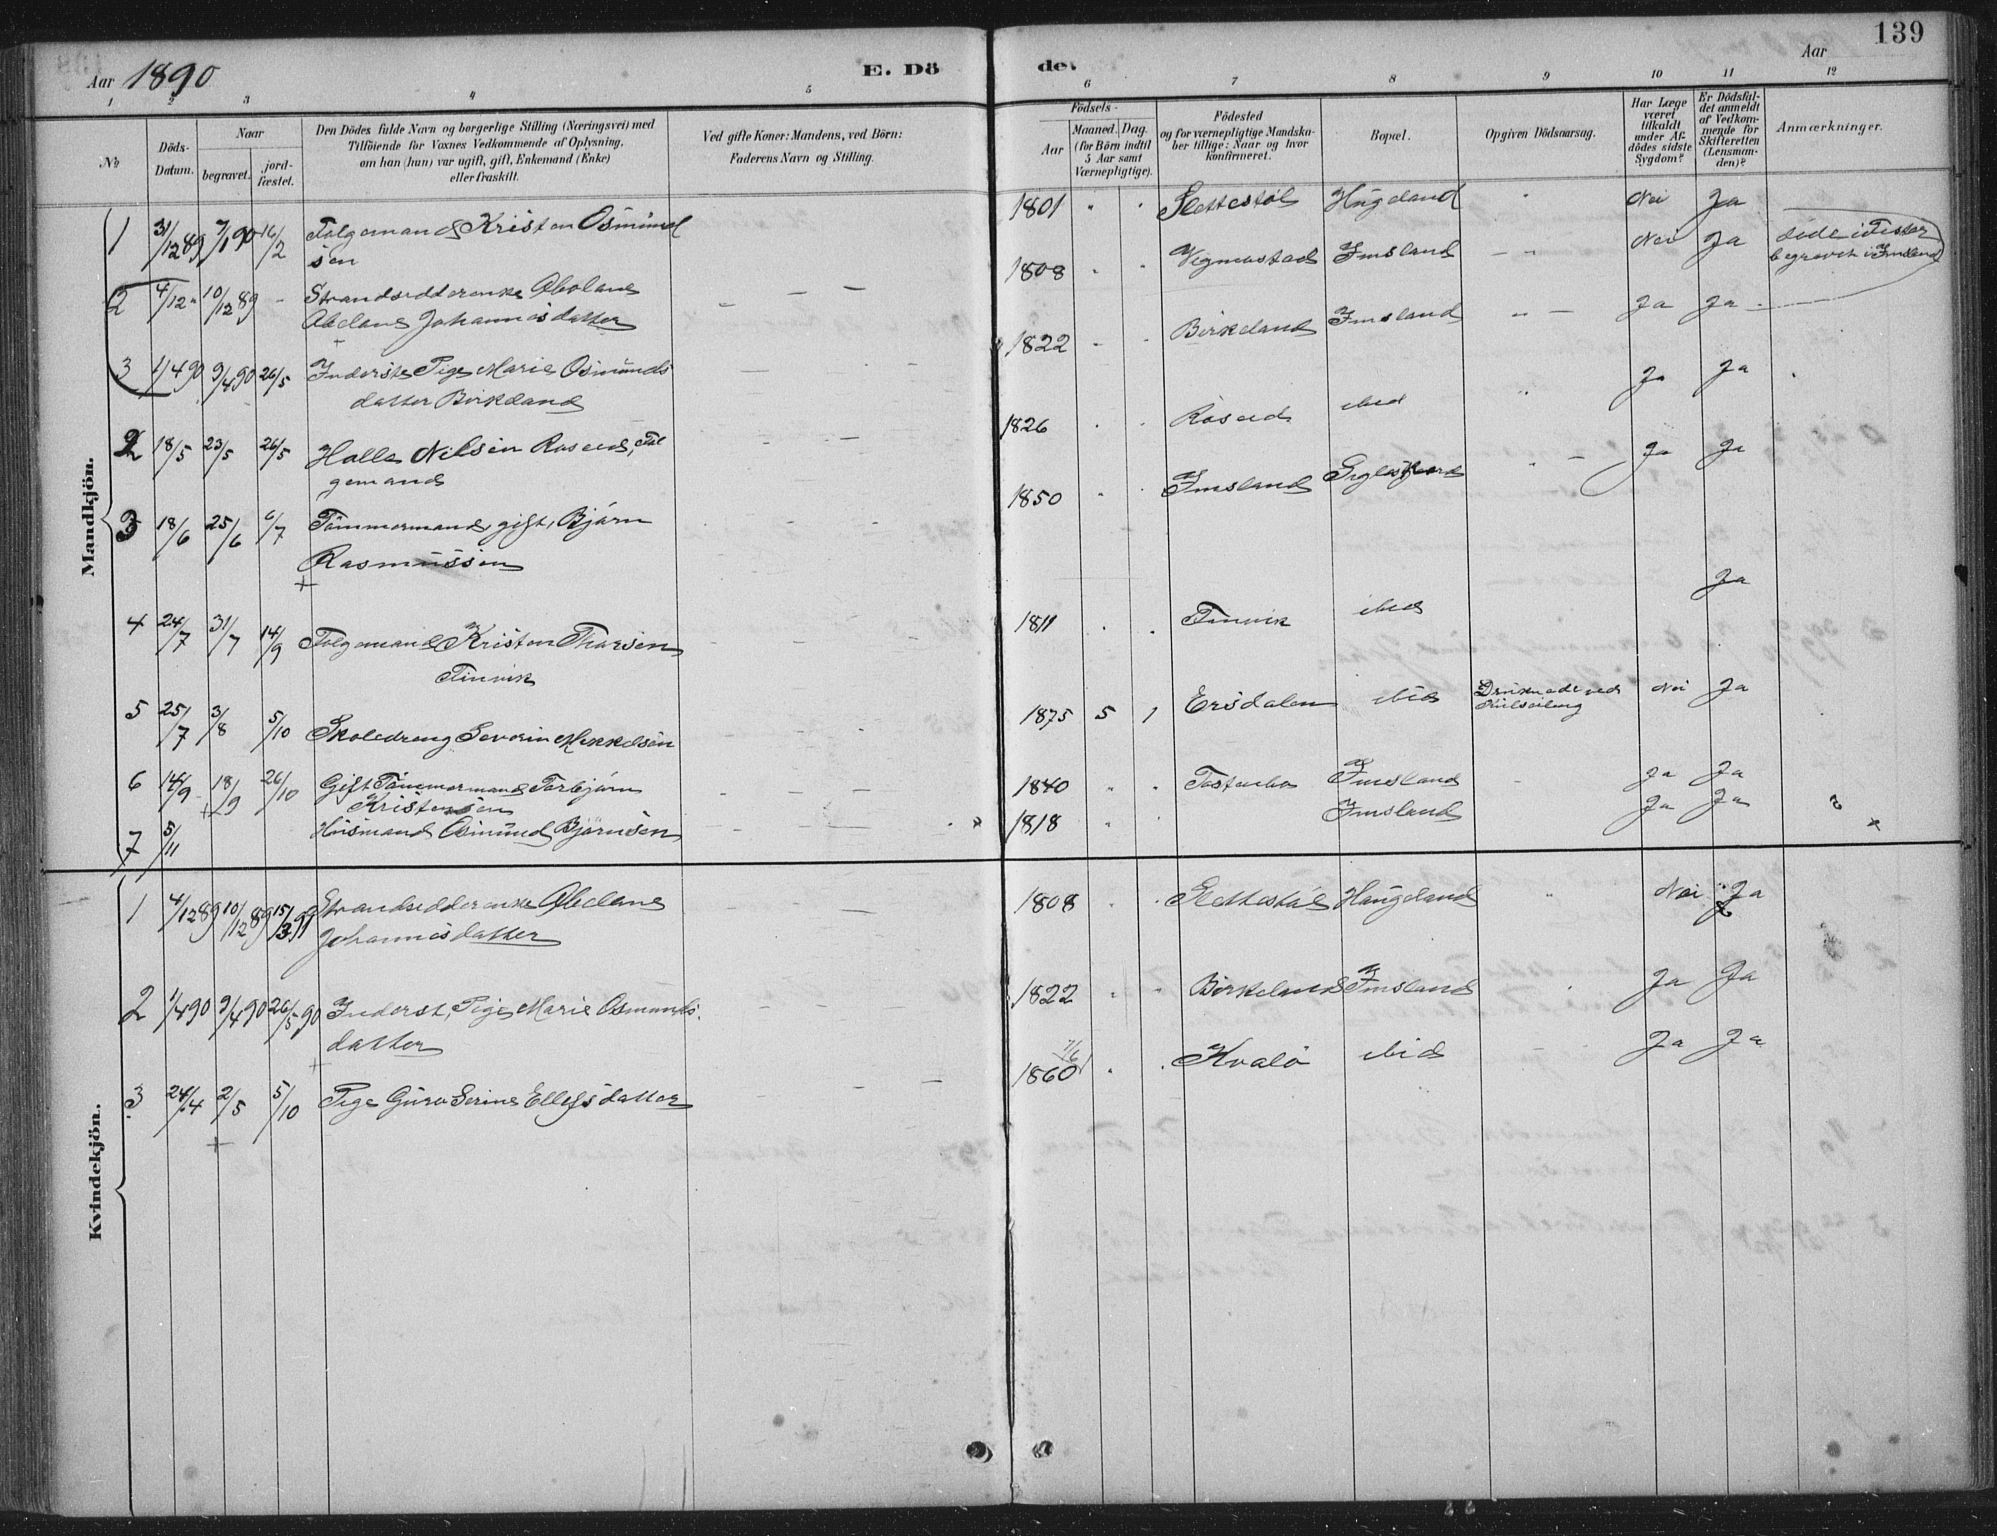 Aar 1890
E. Dö
de.
Aar
139
1 2 3 4 5 6 7 8 9 10 11 12
No
Döds-
Datum.
Naar
begravet.
jord-
fæstet.
Den Dödes fulde Navn og borgerlige Stilling (Næringsvei) med
Tilföiende for Voxnes Vedkommende af Oplysning,
om han (hun) var ugift, gift, Enkemand (Enke)
eller fraskilt.
Ved gifte Koner: Mandens, ved Börn:
Faderens Navn og Stilling.
Födsels-
Aar
Maaned. Dag.
(for Börn indtil
5 Aar samt
Værnepligtige).
Födested
og for værnepligtige Mandska-
ber tillige: Naar og hvor
konfirmeret.
Bopæl.
Opgiven Dödsaarsag.
Har Læge
været
tilkaldt
under Af-
dödes sidste
Sygdom?
Er Dödsfal-
det anmeldt
af Vedkom-
mende for
Skifteretten
(Lensman-
den)?
Anmærkninger.
Mandkjön.
1 31/12 89 7/1 90 16/2 Folgemand Kristen Osmund
sen
1801 Slettestøl Haugeland Nei Ja
2 4/12 10/12 89 Strandsidderenke Abelone
Abelane Johannesdatter
1808 Vegmostad Imsland Nei Ja døde i Fister
begravet i Imsland
3 1/4 90 9/4 90 26/5 Inderst Pige Marie Osmunds
datter Birkeland
1822 Birkeland Imsland Ja Ja
2 18/5 23/5 26/5 Halle Nilsen Røseid, Fol
gemand
1826 Røseid ibid Ja Ja
3 18/6 25/6 6/7 Tömmermand, gift, Bjørn
Rasmussen
1850 Imsland Ja Ja
4 24/7 31/7 14/9 Folgemand Kristen Thorsen
Finnvik
1811 Finnvik ibid Ja
5 25/7 3/8 5/10 Skoledreng Severin Mikkelsen
1875 5 1 Ersdalen ibid Druknede ved
Kuilseiling Nei Ja
6 14/9 18/9 26/10 Gift Tömmermand Torbjørn
Kristensen
1840 Tostenbø Imsland Ja Ja
7 5/11 Husmand Osmund Bjørnsen
1818 Imsland Ja Ja
Kvindekjön.
1 4/12 89 10/12 89 15/3 91 Strandsidderenke Abelane
Johannesdatter
1808 Slettestøl Haugeland Nei Ja
2 1/4 90 9/4 90 26/5 90 Inderst, Pige Marie Osmunds
datter
1822 Birkeland Imsland Ja Ja
3 24/4 2/5 5/10 Pige Guro Serine Ellefsdatter
7/6
1860 Kvalø ibid Ja Ja